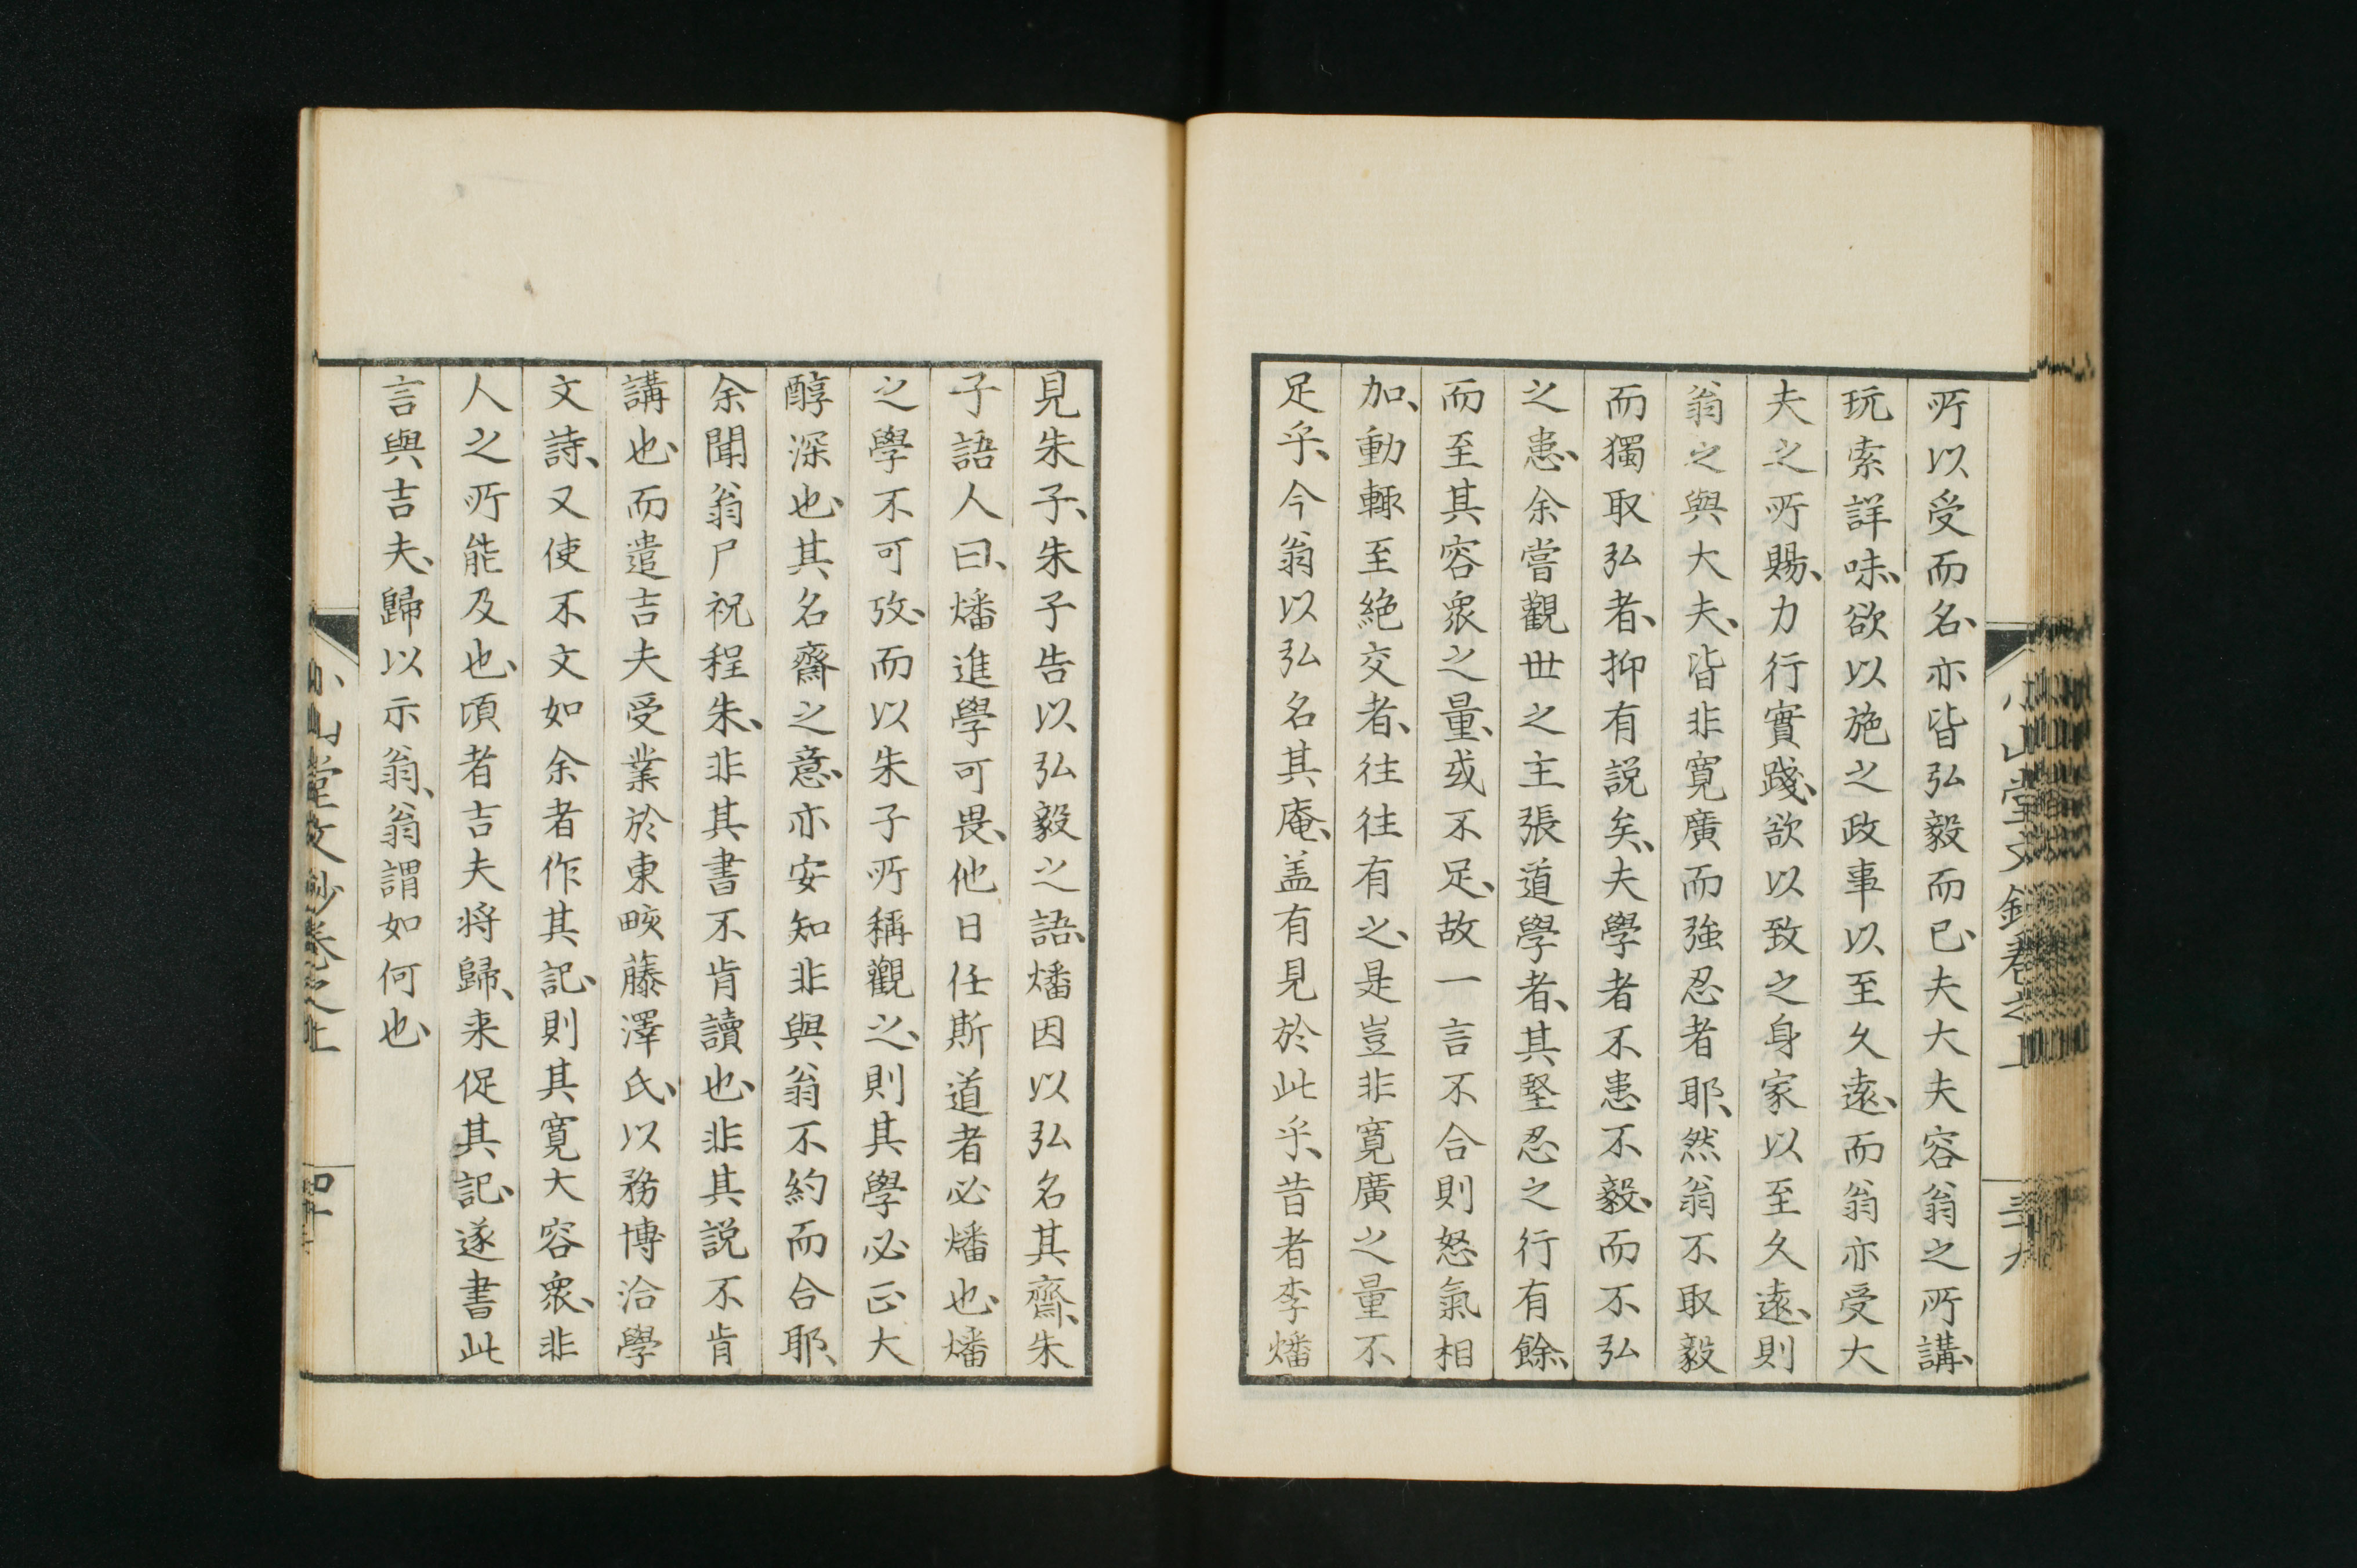 小山堂文鈔卷之上
三十九
所以受而名、亦皆弘毅而已、夫大夫容翁之所講、
玩索詳味、欲以施之政事以至久遠、而翁亦受大
夫之所賜、力行實踐、欲以致之身家以至久遠、則
翁之與大夫、皆非寬廣而強忍者耶、然翁不取毅
而獨取弘者、抑有説矣、夫學者不患不毅、而不弘
之患、余嘗觀世之主張道學者、其堅忍之行有餘、
而至其容衆之量、或不足、故一言不合則怒氣相
加、動輙至絶交者、往往有之、是豈非寬廣之量不
足乎、今翁以弘名其庵、盖有見於此乎、昔者李燔
見朱子、朱子告以弘毅之語、燔因以弘名其齋、朱
子語人曰、燔進學可畏、他日任斯道者必燔也、燔
之學不可攷、而以朱子所稱觀之、則其學必正大
醇深也、其名齋之意、亦安知非與翁不約而合耶、
余聞翁尸祝程朱、非其書不肯讀也、非其説不肯
講也、而遣吉夫受業於東畡藤澤氏、以務博洽學
文詩、又使不文如余者作其記、則其寬大容衆、非
人之所能及也、頃者吉夫将歸、来促其記、遂書此
言與吉夫、歸以示翁、翁謂如何也、
小山堂文鈔卷之上
四十